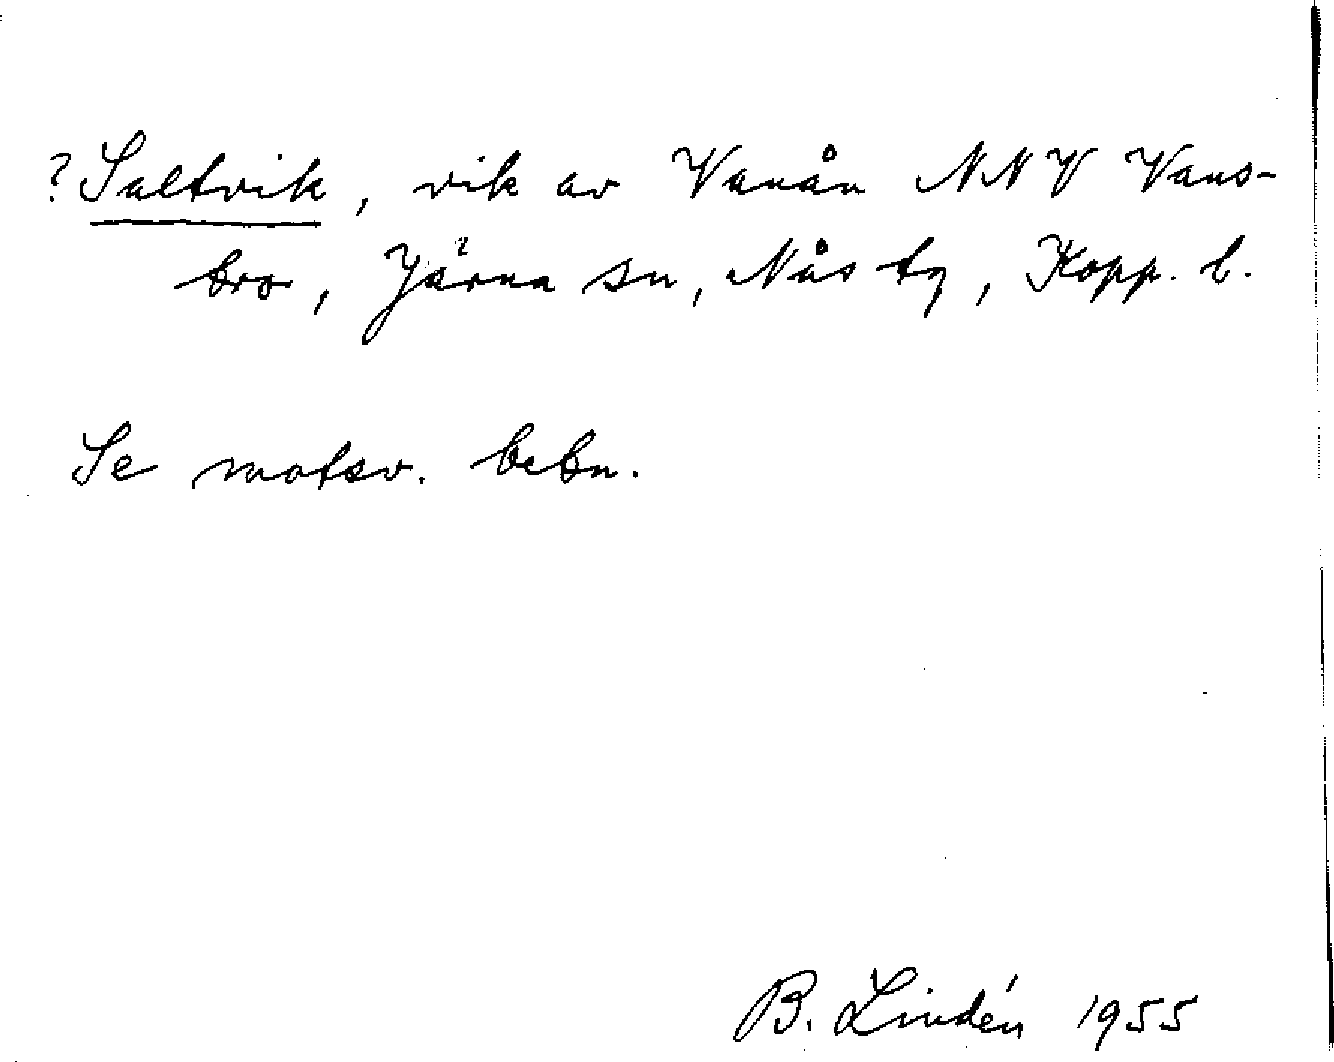 ?Saltvik, vik av Vanån NNV Vans-
bro, Järna sn, Nås tg, Kopp. l.
Se motsv. bebn.
B. Lindén 1955